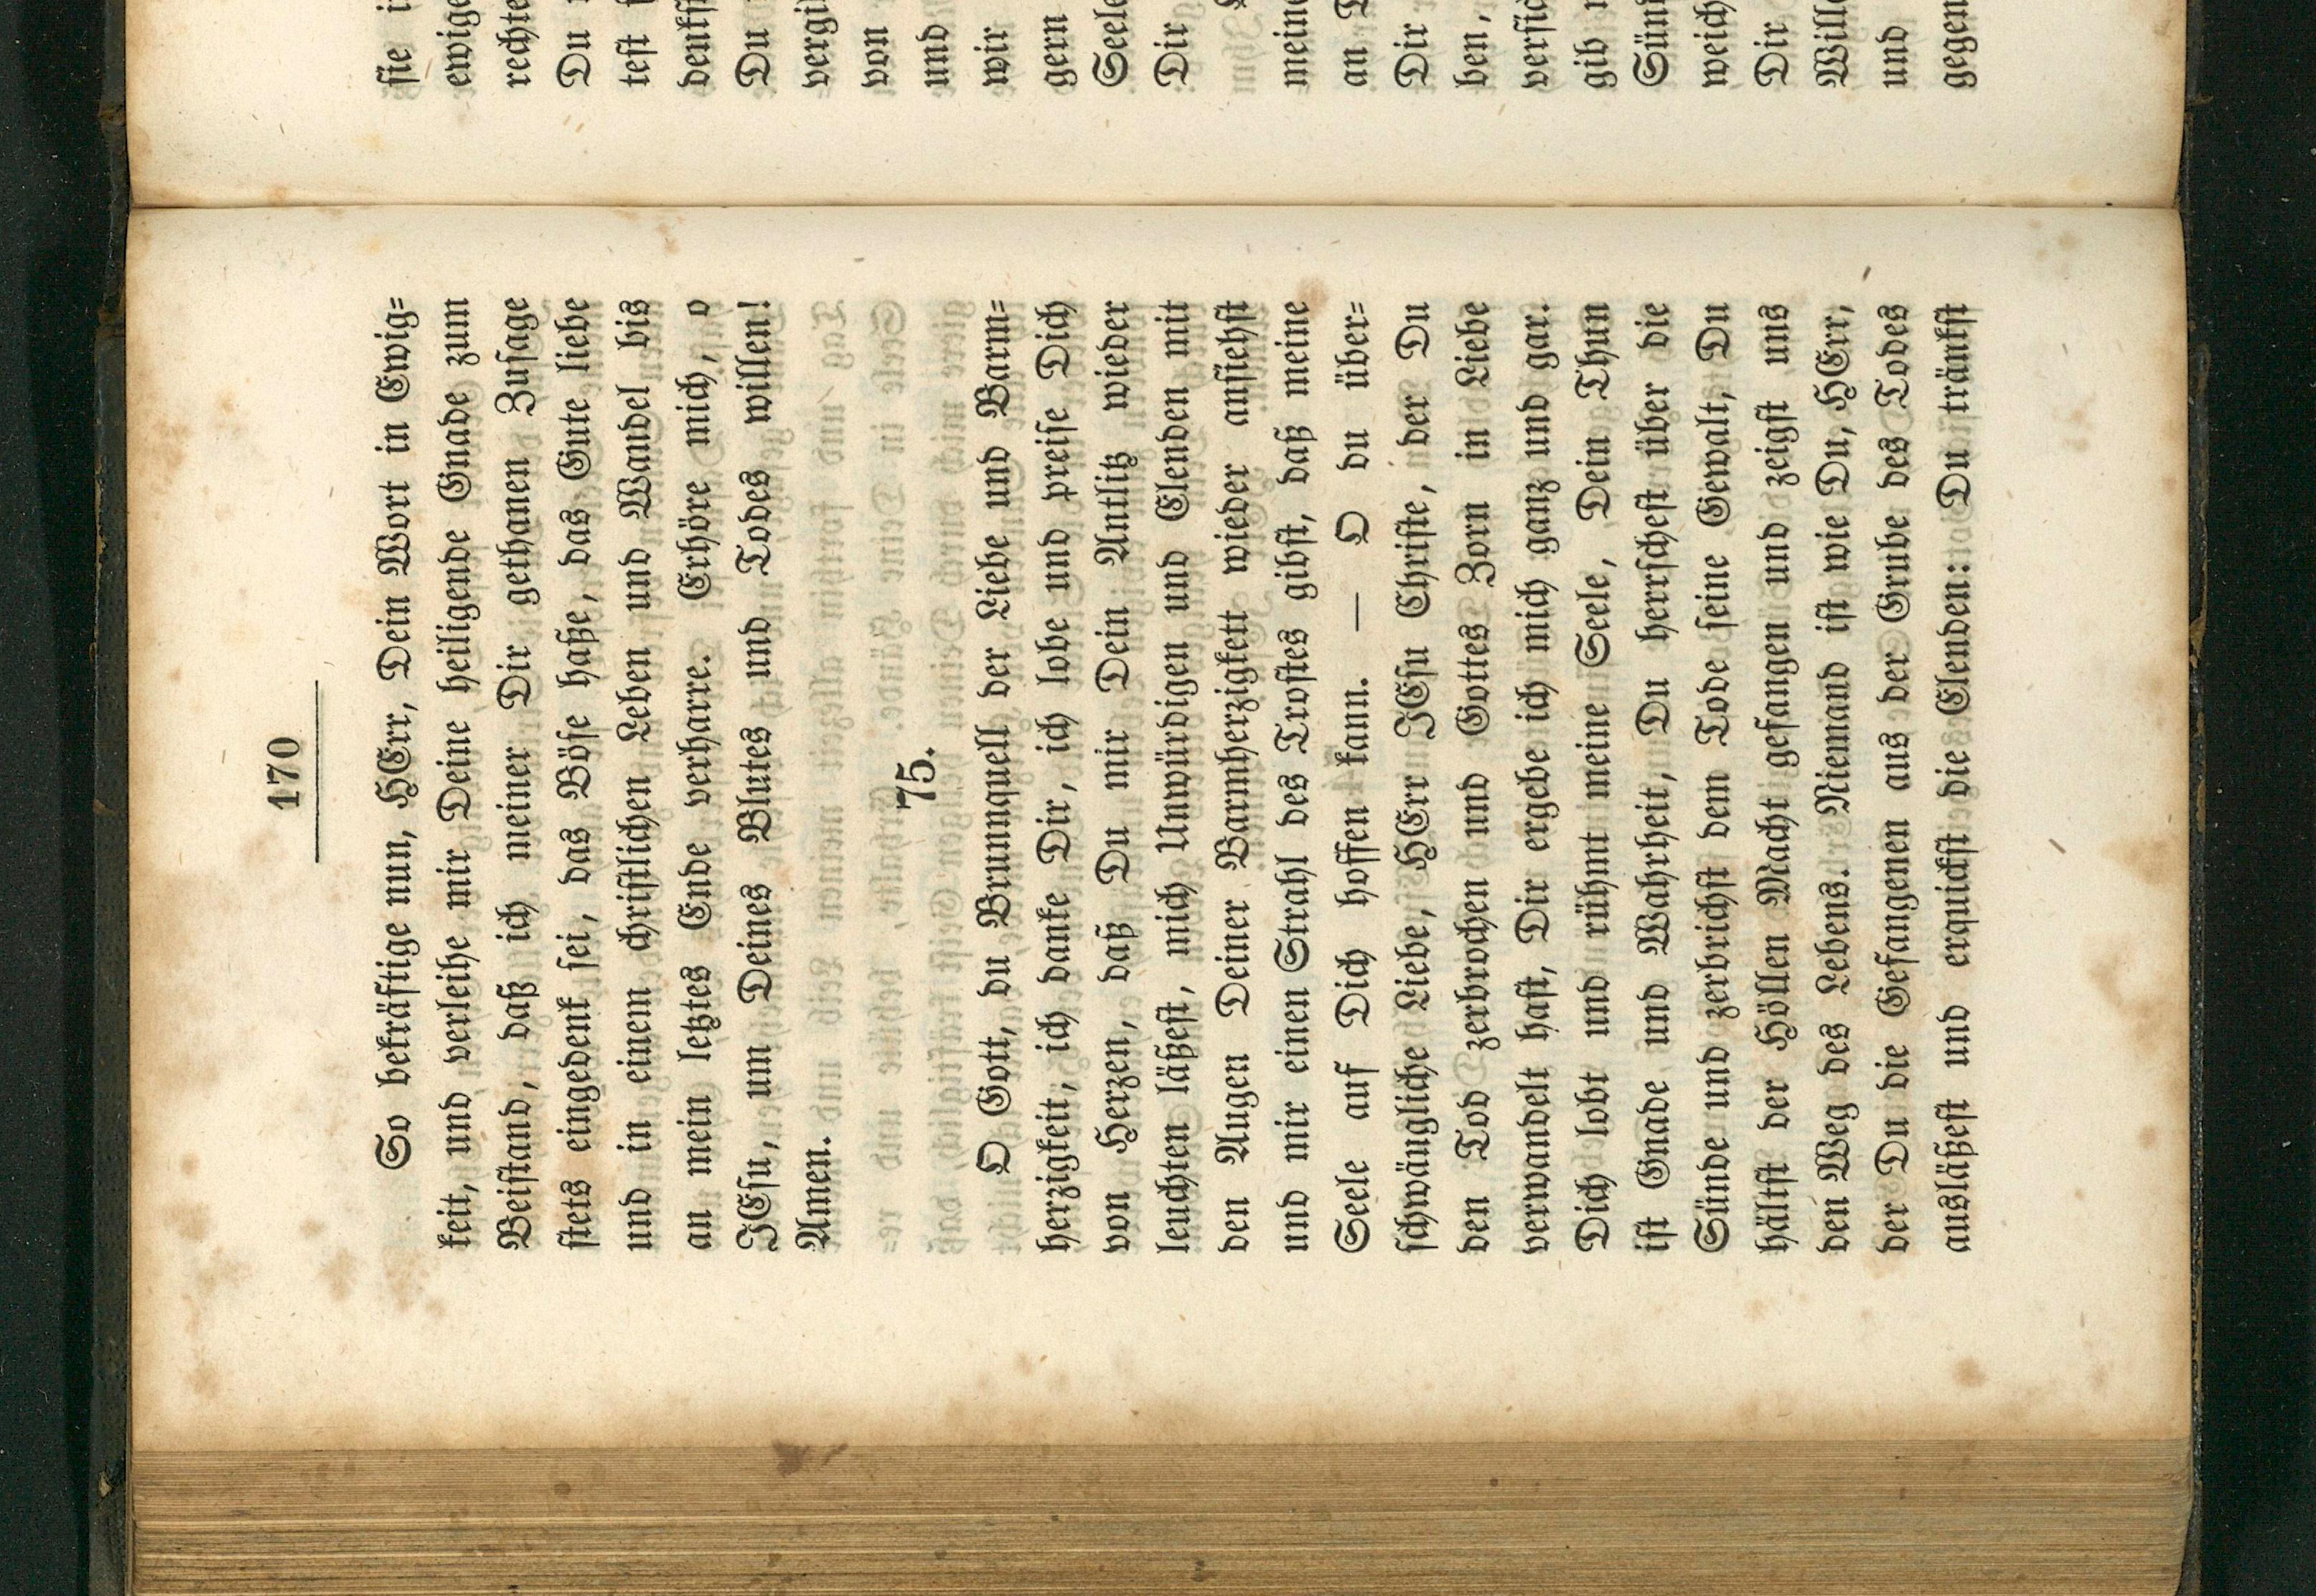 170
So bekräftige nun, HErr, Dein Wort in Ewig=
keit, und verleihe mir Deine heiligende Gnade zum
Beistand, daß ich meiner Dir gethanen Zusage
stets eingedenk sei, das Böse haße, das Gute liebe
und in einem christlichen Leben und Wandel bis
an mein letztes Ende verharre. Erhöre mich, o
JEsu, um Deines Blutes und Todes willen!
Amen.
75.
O Gott, du Brunnquell der Liebe und Barm=
herzigkeit, ich danke Dir, ich lobe und preise Dich
von Herzen, daß Du mir Dein Antlitz wieder
leuchten läßest, mich Unwürdigen und Elenden mit
den Augen Deiner Barmherzigkett wieder ansiehst
und mir einen Strahl des Trostes gibst, daß meine
Seele auf Dich hoffen kann. — O du über=
schwängliche Liebe, HErr JEsu Christe, der Du
den Tod zerbrochen und Gottes Zorn in Liebe
verwandelt hast, Dir ergebe ich mich ganz und gar.
Dich lobt und rühmt meine Seele, Dein Thun
ist Gnade und Wahrheit, Du herrschest über die
Sünde und zerbrichst dem Tode seine Gewalt, Du
hältst der Höllen Macht gefangen und zeigst uns
den Weg des Lebens. Niemand ist wie Du, HErr,
der Du die Gefangenen aus der Grube des Todes
ausläßest und erquickst die Elenden: Du tränkst
sie
ewige
rechte
Du
test
Du
von
und
wir
gern
Seele
Dir
an
Dir
ben,
gib
Dir
und
gegen